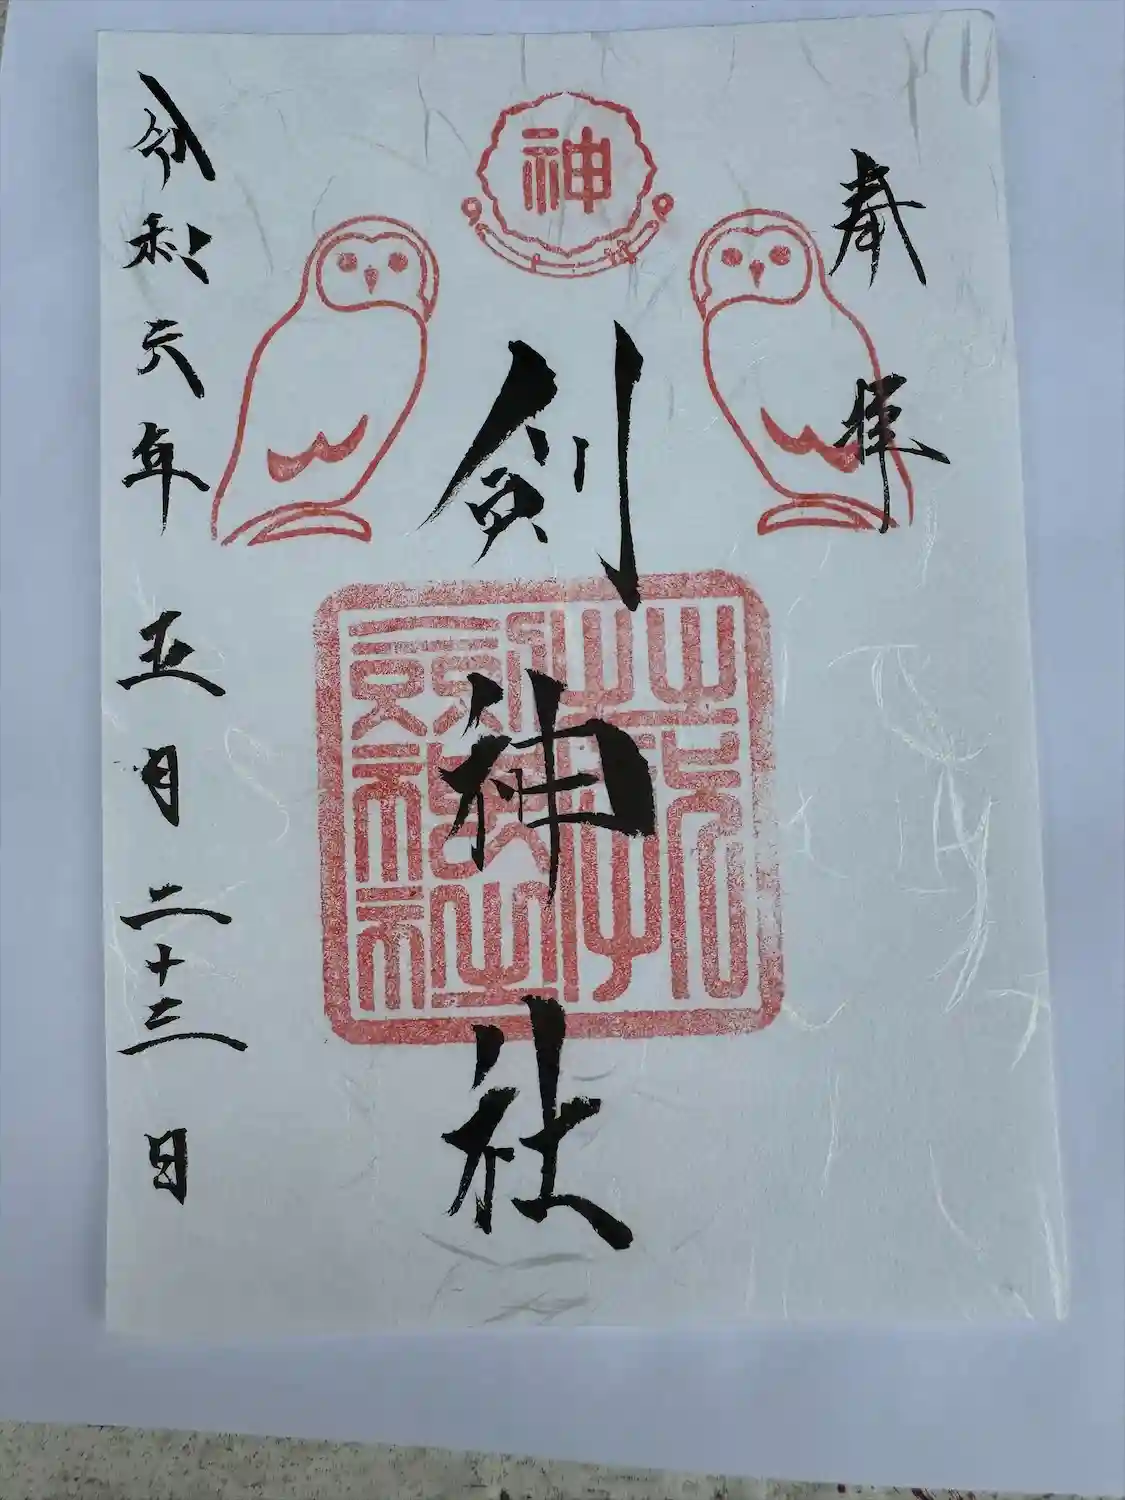 奉拝
神
剣神社
令和六年五月二十三日